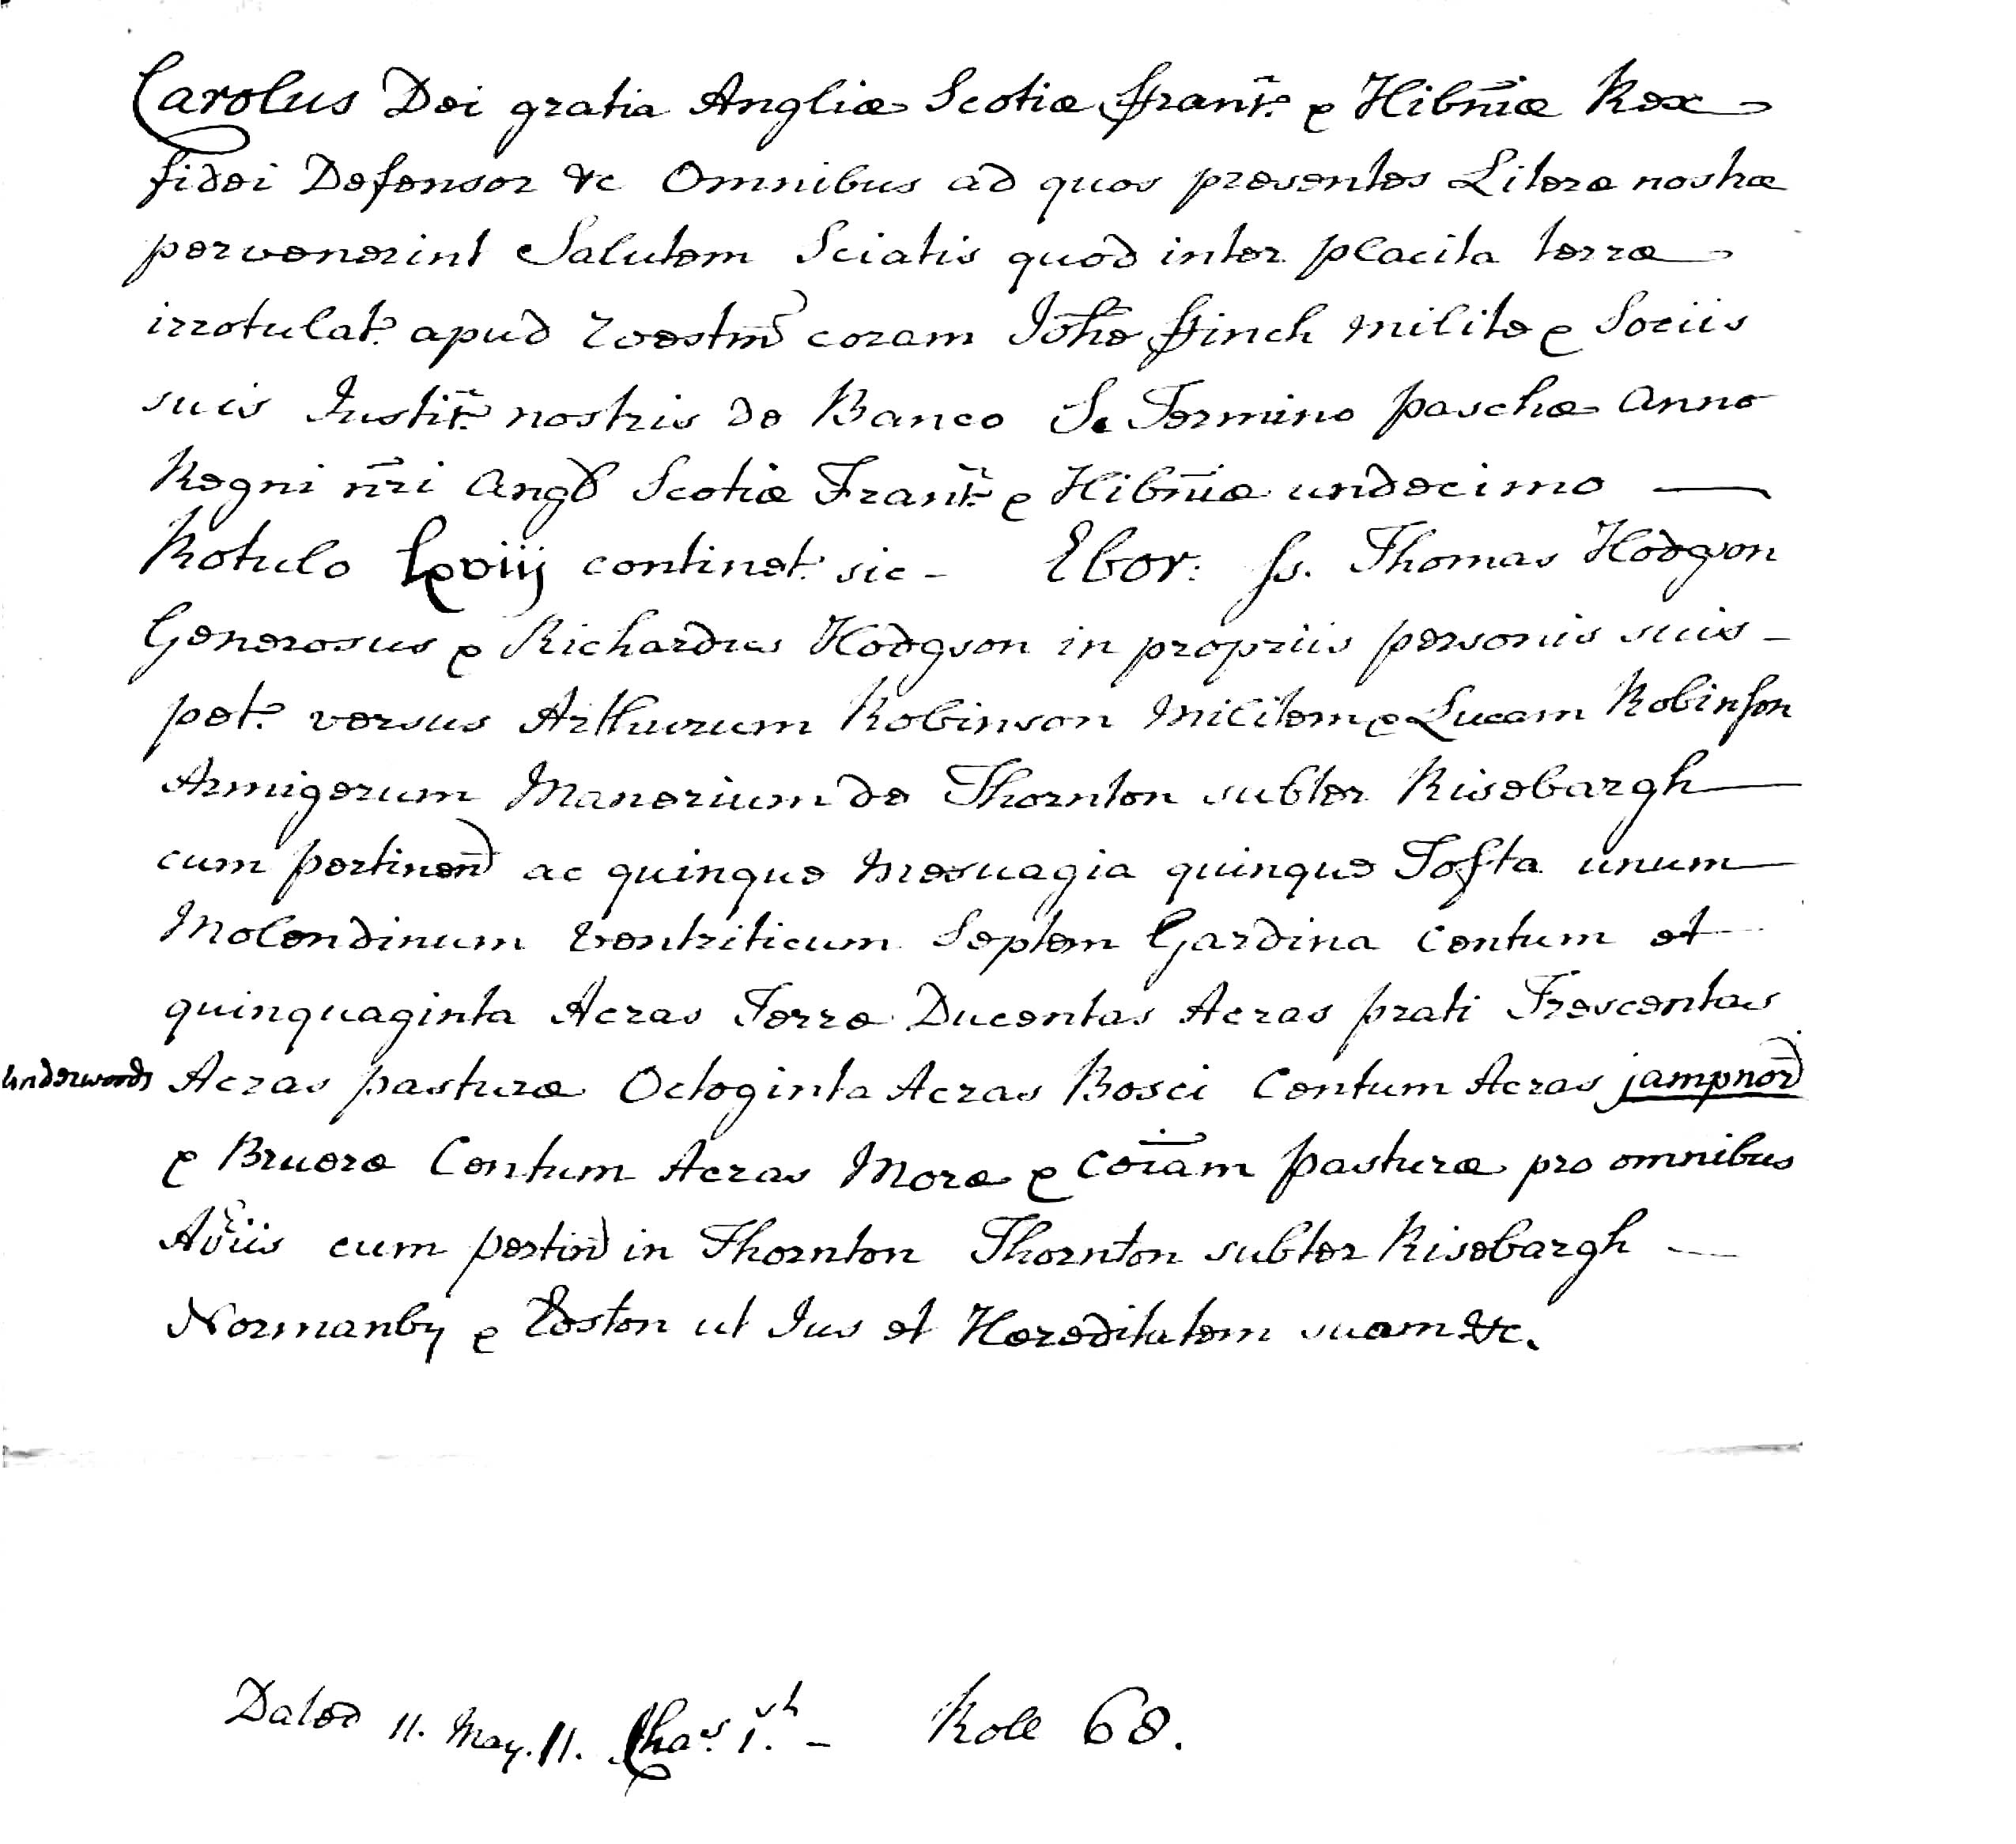 Carolus Dei gratia Angliæ Scotiæ ffranc̃. & Hib̃niæ Rex
fidei Defensor &c Omnibus ad quos presentes Literæ nostræ
pervenerint Salutem Sciatis quod inter placita terræ
irrotulat. apud Westm̃ coram Joh̃e ffinch milite & Sociis
suis Justic̃. nostris de Banco Termino paschæ Anno
Regni nr̃i Angl Scotiæ Franc̃. & Hib̃niæ undecimo —
Rotulo Lxviij continet. sic – Ebor: ss. Thomas Hodgson
Generosus & Richardus Hodgson in propriis personis suis –
pet. versus Arthurum Robinson Militem & Lucam Robinson
Armigerum Manerium de Thornton subter Risebargh
cum pertineñ ac quinque Mesuagia quinque Tofta unum
Molendinum Ventriticum Septem Gardina Centum et
quinquaginta Acras Terræ Ducentas Acras prati Trescentas
Underwoods Acras pasturæ Octoginta Acras Bosci Centum Acras jampnor̃
& Bruere Centum Acras More & Coĩam pasturæ pro omnibus
Av̄iis cum pertin̄ in Thornton Thornton subter Risebargh —
Normanby & Eston ut Jus et Hereditatem suam &c.
Dated 11. May. 11. Chas. 1.st – Roll 68.